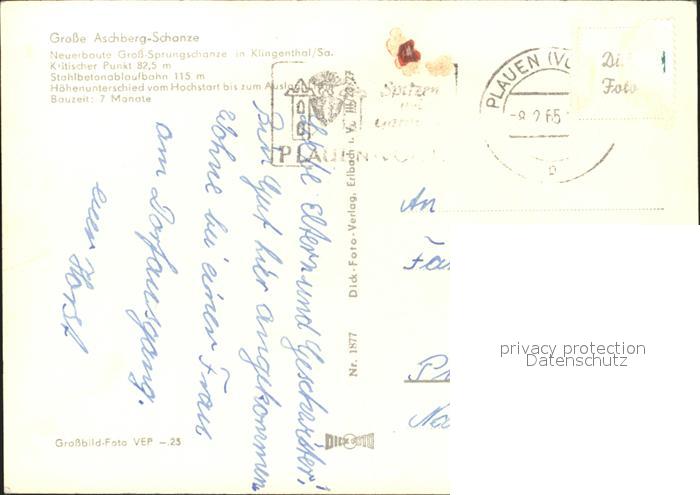 Große Aschberg-Schanze
Neuerbaute Groß-Sprungschanze in Klingenthal/Sa.
Kritischer Punkt 82,5 m
Stahlbetonablaufbahn 115 m
Höhenunterschied vom Hochstart bis zum Auslauf
Bauzeit: 7 Monate
Spitzen
und
PLAUEN
PLAUEN (VO
-8.2.65
Dick
Foto
Liebe Eltern und Geschwister!
Bin gut hier angekommen
Wohne bei einer Frau
am Dorfausgang.
euer Horst
An
Fa
Nr. 1877 Dick-Foto-Verlag, Erlbach i. V. III/28/27
DICK FOTO
Großbild-Foto VEP -.25
privacy protection
Datenschutz